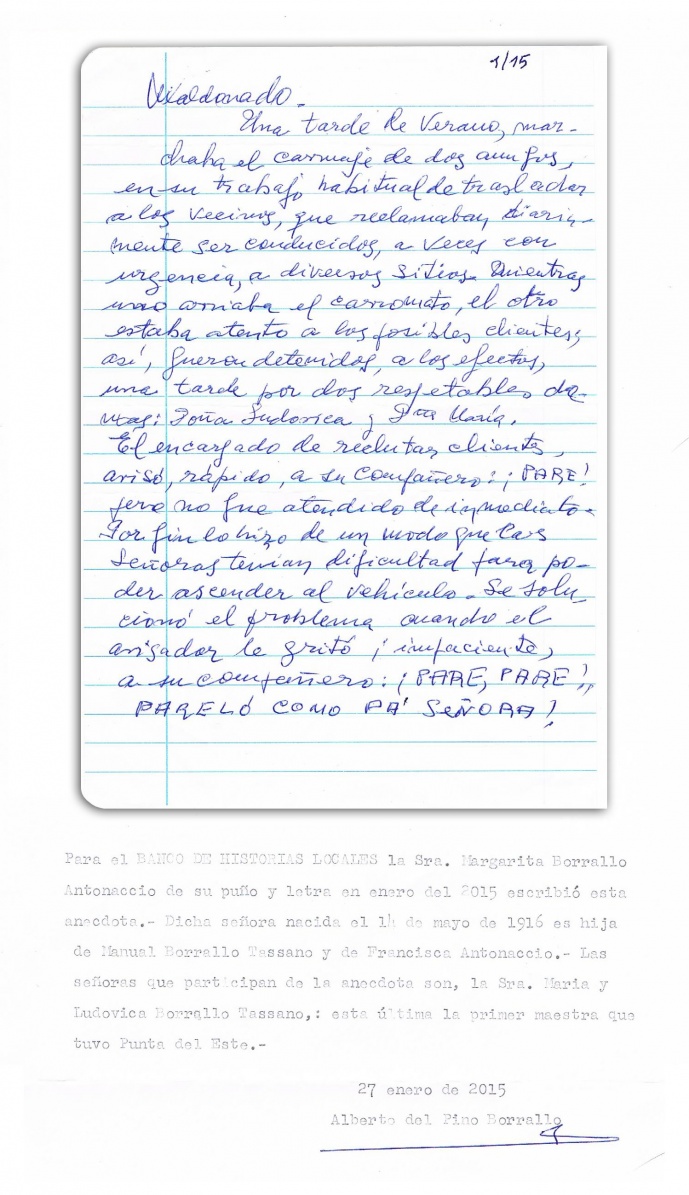 1/15
Maldonado.-
Una tarde de Verano, mar-
chaba el carruaje de dos amigos,
en su trabajo habitual de trasladar
a los vecinos, que reclamaban diaria-
mente ser conducidos, a veces con
urgencia, a diversos sitios. Mientras
uno arriaba el carromato, el otro
estaba atento a los posibles clientes;
así, fueron detenidos, a los efectos,
una tarde por dos respetables da-
mas: Doña Ludovica y Dña María.
El encargado de reclutar clientes,
avisó, rápido, a su compañero: ¡PARE!
pero no fue atendido de inmediato.
Por fin lo hizo de un modo que las
Señoras tenían dificultad para po-
der ascender al vehículo. Se solu-
cionó el problema cuando el
avisador le gritó ¡ impaciente,
a su compañero: ¡PARE, PARE!,
PARELÓ COMO PA' SEÑORA!
Para el BANCO DE HISTORIAS LOCALES la Sra. Margarita Borrallo
Antonaccio de su puño y letra en enero del 2015 escribió esta
anecdota.- Dicha señora nacida el 14 de mayo de 1916 es hija
de Manual Borrallo Tassano y de Francisca Antonaccio.- Las
señoras que participan de la anecdota son, la Sra. Maria y
Ludovica Borrallo Tassano,: esta última la primer maestra que
tuvo Punta del Este.-
27 enero de 2015
Alberto del Pino Borrallo